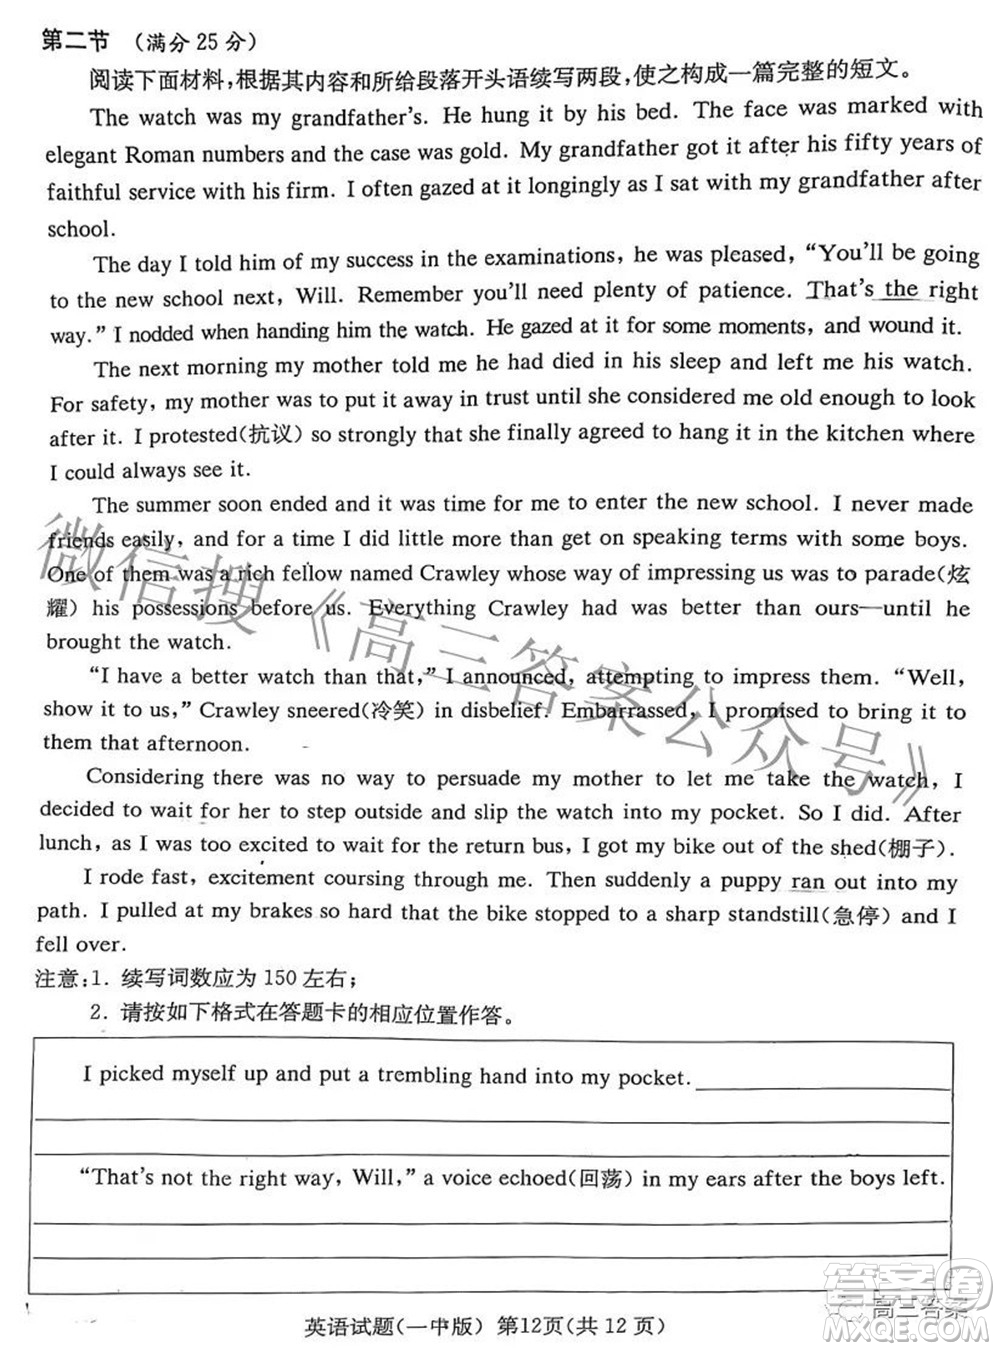 第二节 （满分25分）
阅读下面材料,根据其内容和所给段落开头语续写两段,使之构成一篇完整的短文。
The watch was my grandfather's. He hung it by his bed. The face was marked with
elegant Roman numbers and the case was gold. My grandfather got it after his fifty years of
faithful service with his firm. I often gazed at it longingly as I sat with my grandfather after
school.
The day I told him of my success in the examinations, he was pleased, “You'll be going
to the new school next, Will. Remember you'll need plenty of patience. That's the right
way.” I nodded when handing him the watch. He gazed at it for some moments, and wound it.
The next morning my mother told me he had died in his sleep and left me his watch.
For safety, my mother was to put it away in trust until she considered me old enough to look
after it. I protested(抗议) so strongly that she finally agreed to hang it in the kitchen where
I could always see it.
The summer soon ended and it was time for me to enter the new school. I never made
friends easily, and for a time I did little more than get on speaking terms with some boys.
One of them was a rich fellow named Crawley whose way of impressing us was to parade(炫
耀) his possessions before us. Everything Crawley had was better than ours—until he
brought the watch.
“I have a better watch than that,” I announced, attempting to impress them. “Well,
show it to us,” Crawley sneered(冷笑) in disbelief. Embarrassed, I promised to bring it to
them that afternoon.
Considering there was no way to persuade my mother to let me take the watch, I
decided to wait for her to step outside and slip the watch into my pocket. So I did. After
lunch, as I was too excited to wait for the return bus, I got my bike out of the shed(棚子).
I rode fast, excitement coursing through me. Then suddenly a puppy ran out into my
path. I pulled at my brakes so hard that the bike stopped to a sharp standstill(急停) and I
fell over.
注意:1. 续写词数应为150左右;
2. 请按如下格式在答题卡的相应位置作答。
I picked myself up and put a trembling hand into my pocket.
“That's not the right way, Will,” a voice echoed(回荡) in my ears after the boys left.
英语试题(一中版) 第12页(共12页)
微信搜《高三答案公众号》
高三答案
答案圈
MXQE.COM